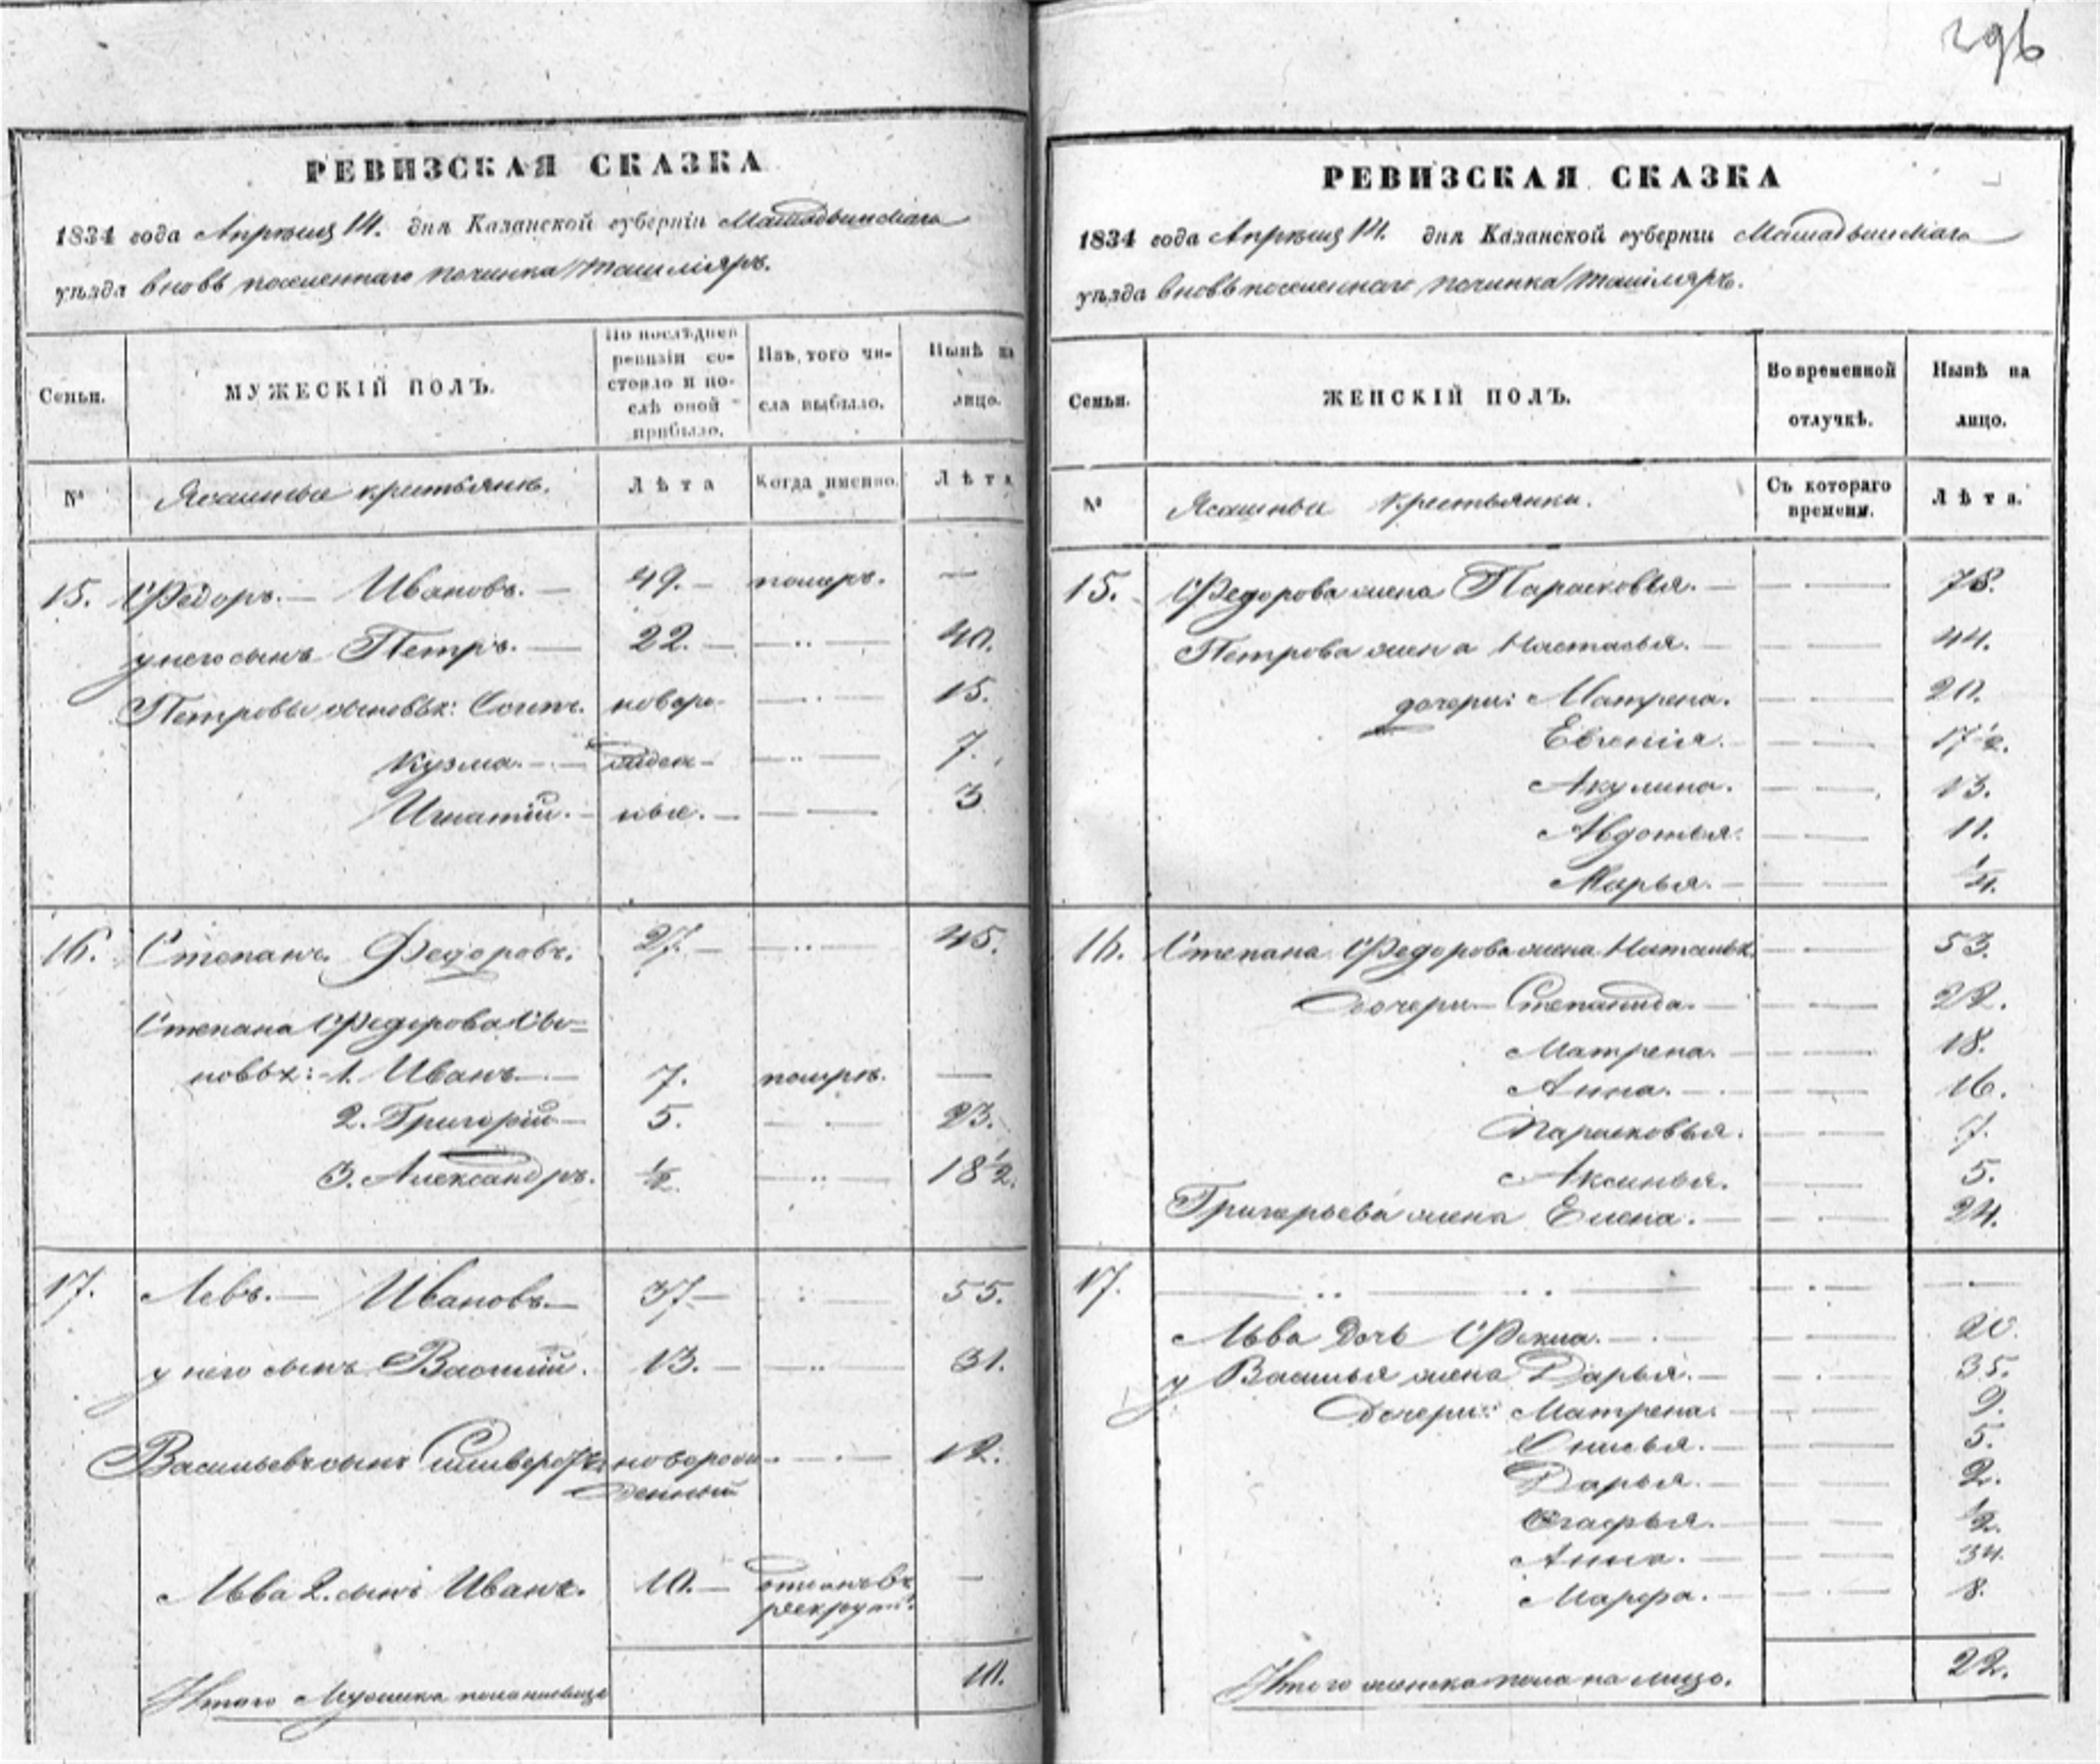 296
РЕВИЗСКАЯ СКАЗКА
1834 года Апрѣля 14. дня Казанской губерніи Мамадышскаго
уѣзда вновь поселеннаго починка Ташлияръ.
Семьи.
МУЖЕСКІЙ ПОЛЪ.
По послѣдней ревизіи со-
стояло и по-
слѣ оной
прибыло.
Изъ того чи-
сла выбыло.
Нынѣ на
лицо.
№
Ясашные крестьяне.
Лѣта
Когда именно.
Лѣта
15. Федоръ. — Ивановъ. — 49. — померъ. —
у него сынъ Петръ. — 22. — — 40.
Петровы сыновья: новоро- — 15.
Кузма. — жден- — 7.
Игнатій. — ные. — — 3
16. Степанъ Федоровъ. 27. — — 45.
Степана Федорова Сы-
новья: 1. Иванъ — 7. померъ. —
2. Григорій — 5. — 23.
3. Александръ. ½ — 18½.
17. Левъ. — Ивановъ. — 37 — — 55.
у него сынъ Василій. 13. — — 31.
Васильевъ сынъ новорож- — 12.
денный
Льва 2. сынъ Иванъ. 10. — отданъ въ —
рекруты.
Итого Мужеска пола налицо 10.
РЕВИЗСКАЯ СКАЗКА
1834 года Апрѣля 14. дня Казанской губерніи Мамадышскаго
уѣзда вновь поселеннаго починка Ташлияръ.
Семьи.
ЖЕНСКІЙ ПОЛЪ.
Во временной
отлучкѣ.
Нынѣ на
лицо.
№
Ясашныя Крестьянки.
Съ котораго
времени.
Лѣта.
15. Федорова жена Парасковья. — — 78.
Петрова жена Настасья. — — 44.
дочери: Матрена. — 20.
Евгенія. — — 17½.
Акулина. — 13.
Авдотья. — 11.
Марья. — — ¼.
16. Степана Федорова жена Наталья. — 53.
Дочери — Степанида. — — 22.
Матрена. — — 18.
Анна. — — 16.
Парасковья. — 7.
Аксинья. — 5.
Григорьева жена Елена. — — 24.
17. — — —
Льва Дочь Фекла. — — 20.
у Василья жена Дарья. — — 35.
Дочери: Матрена. — 9.
— 5.
Дарья. — — 2.
Агафья. — — ½.
Анна. — — 34.
Марфа. — — 8.
Итого женска пола на лицо. 22.